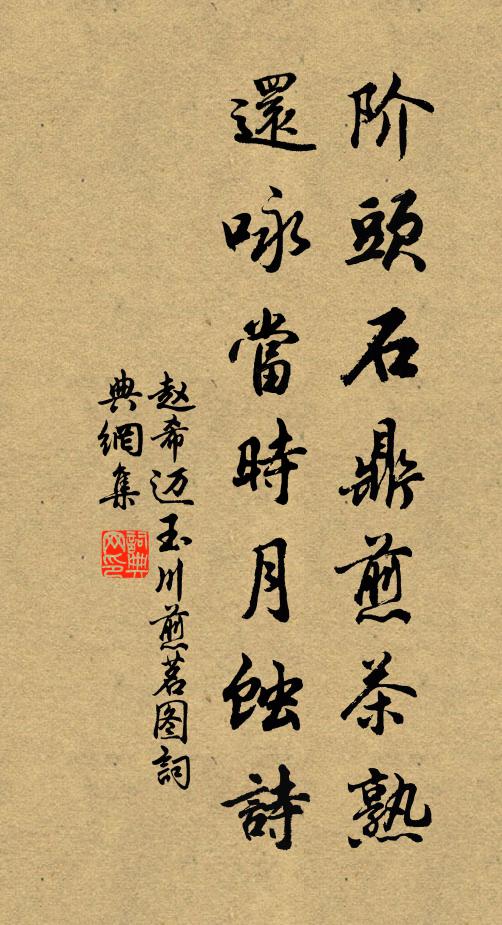 阶頭石鼎煎茶熟
還咏當時月蝕詩
赵希迈玉川煎茗图詞
典網集
詞典网印